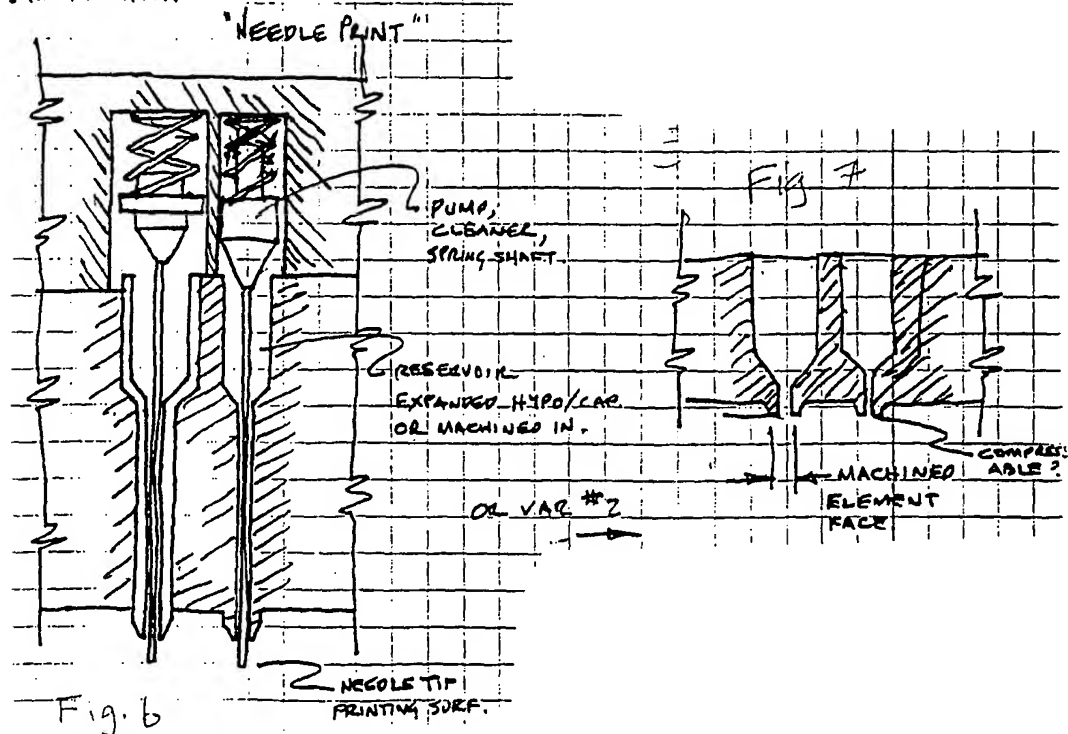 "NEEDLE PRINT"
PUMP,
CLEANER,
SPRING SHAFT.
RESERVOIR
EXPANDED HYPO/CAP.
OR MACHINED IN.
NEEDLE TIP
PRINTING SURF.
Fig. 6
OR VAR #2
Fig 7
COMPRESS
ABLE?
MACHINED
ELEMENT
FACE